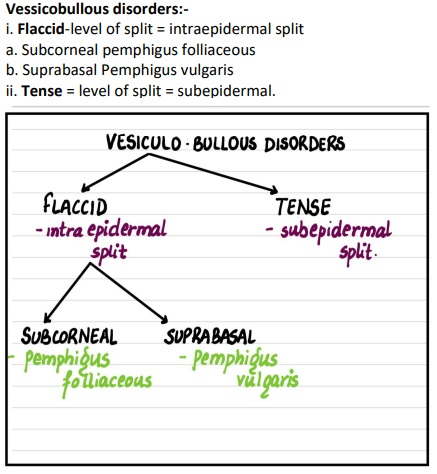 Vessicobullous disorders:-
i. Flaccid-level of split = intraepidermal split
a. Subcorneal pemphigus folliaceous
b. Suprabasal Pemphigus vulgaris
ii. Tense = level of split = subepidermal.
VESICULO-BULLOUS DISORDERS
FLACCID
- intra epidermal
split
TENSE
- subepidermal
split.
SUBCORNEAL
- Pemphigus
folliaceous
SUPRABASAL
- Pemphigus
vulgaris